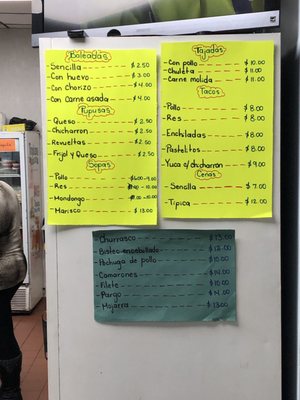 Baleadas
Sencilla $2.50
Con huevo $3.00
Con chorizo $4.00
Con carne asada $4.00
Pupusas
Queso $2.50
Chicharron $2.50
Revueltas $2.50
Frijol y Queso $2.50
Sopas
Pollo $6.00-9.00
Res 10.00
Mondongo 10.00
Marisco $13.00
Tajadas
Con pollo $10.00
Chuleta $11.00
Carne molida $11.00
Tacos
Pollo $8.00
Res $8.00
Enchiladas $8.00
Pastelitos $8.00
Yuca c/chicharron $9.00
Cenas
Sencilla $7.00
Tipica $12.00
Churrasco $13.00
Bistec encebollado $12.00
Pechuga de pollo $10.00
Camarones $14.00
Filete $10.00
Pargo $14.00
Mojarra $13.00